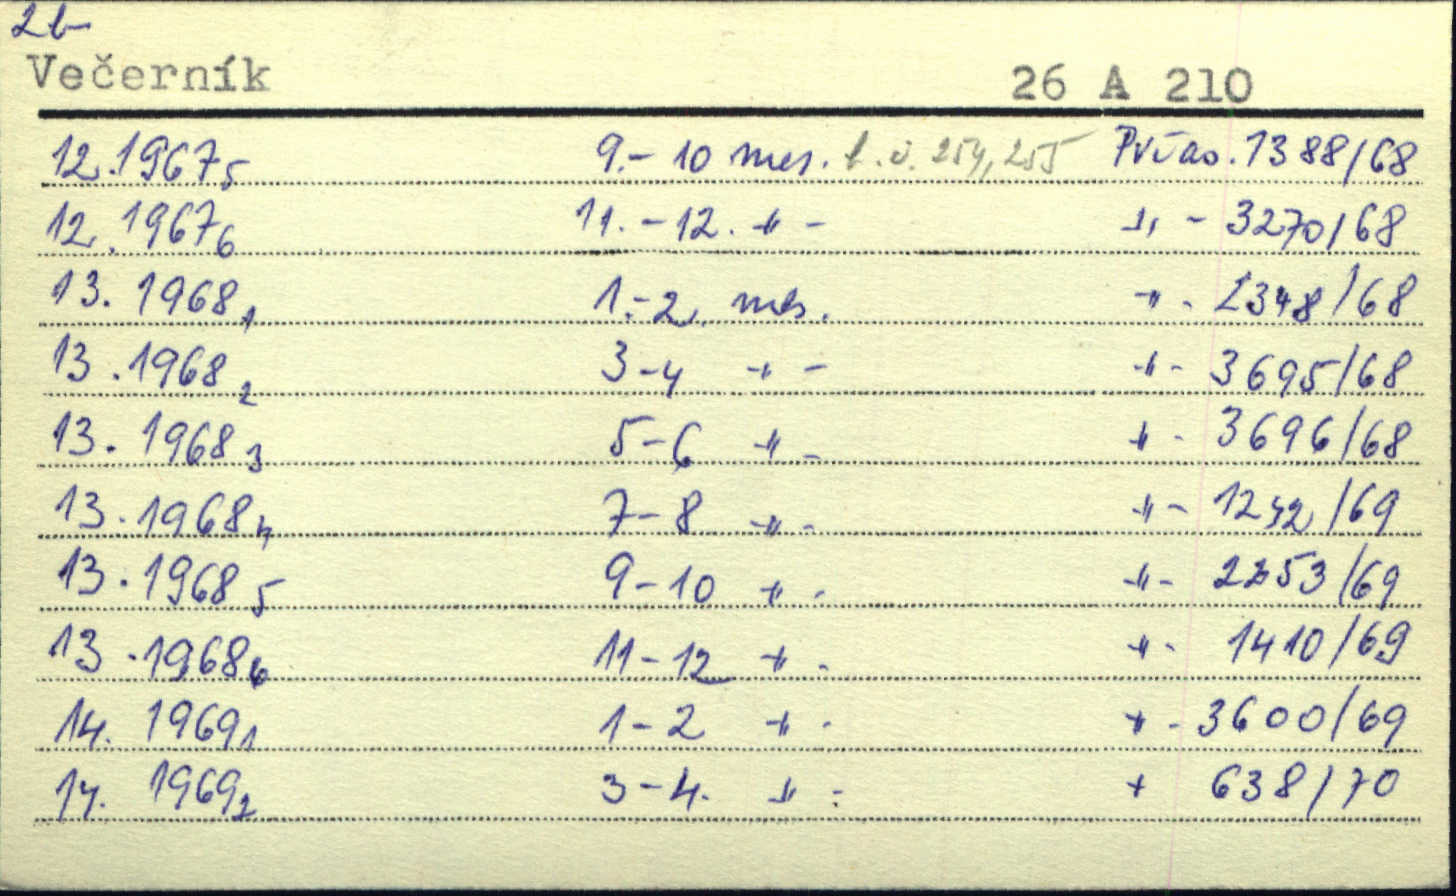 2b
Večerník 26 A 210
12. 1967 5 9.-10 mes. č. 254, 255 Prías. 1388/68
12. 1967 6 11.-12. -"- -"- 3270/68
13. 1968 1 1.-2. mes. -"- 2348/68
13. 1968 2 3-4 -"- -"- 3695/68
13. 1968 3 5-6 -"- -"- 3696/68
13. 1968 4 7-8 -"- -"- 1242/69
13. 1968 5 9-10 -"- -"- 2253/69
13. 1968 6 11-12 -"- -"- 1410/69
14. 1969 1 1-2 -"- -"- 3600/69
14. 1969 2 3-4. -"- -"- 638/70